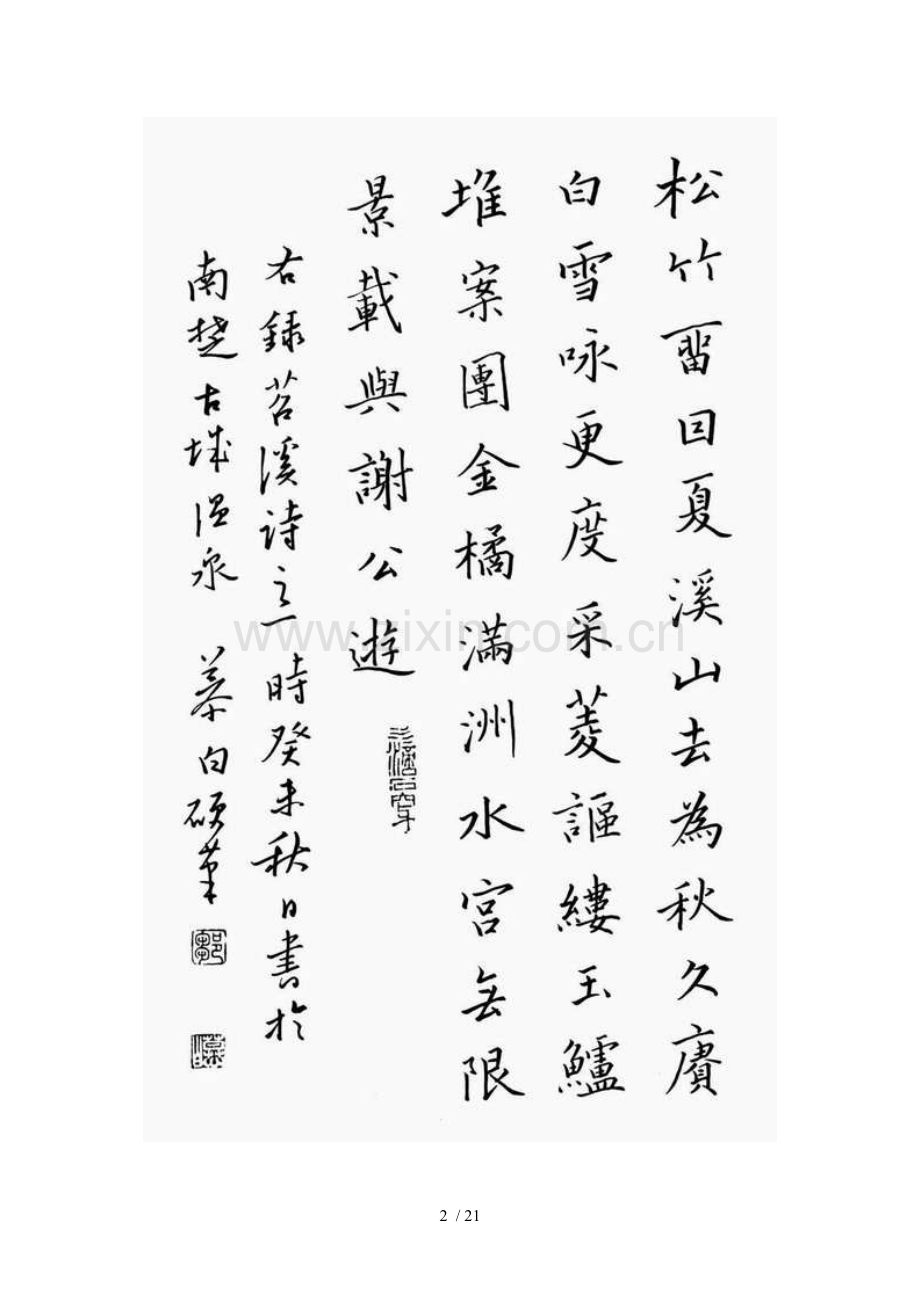 松竹畱回夏溪山去為秋久賡
白雪咏更度采菱謳縷玉鱸
堆案團金橘滿洲水宮無限
景載與謝公遊
右録苕溪詩之一時癸未秋日書於
南楚古城温泉 慕白硕筆
www.zixin.com.cn
2 / 21